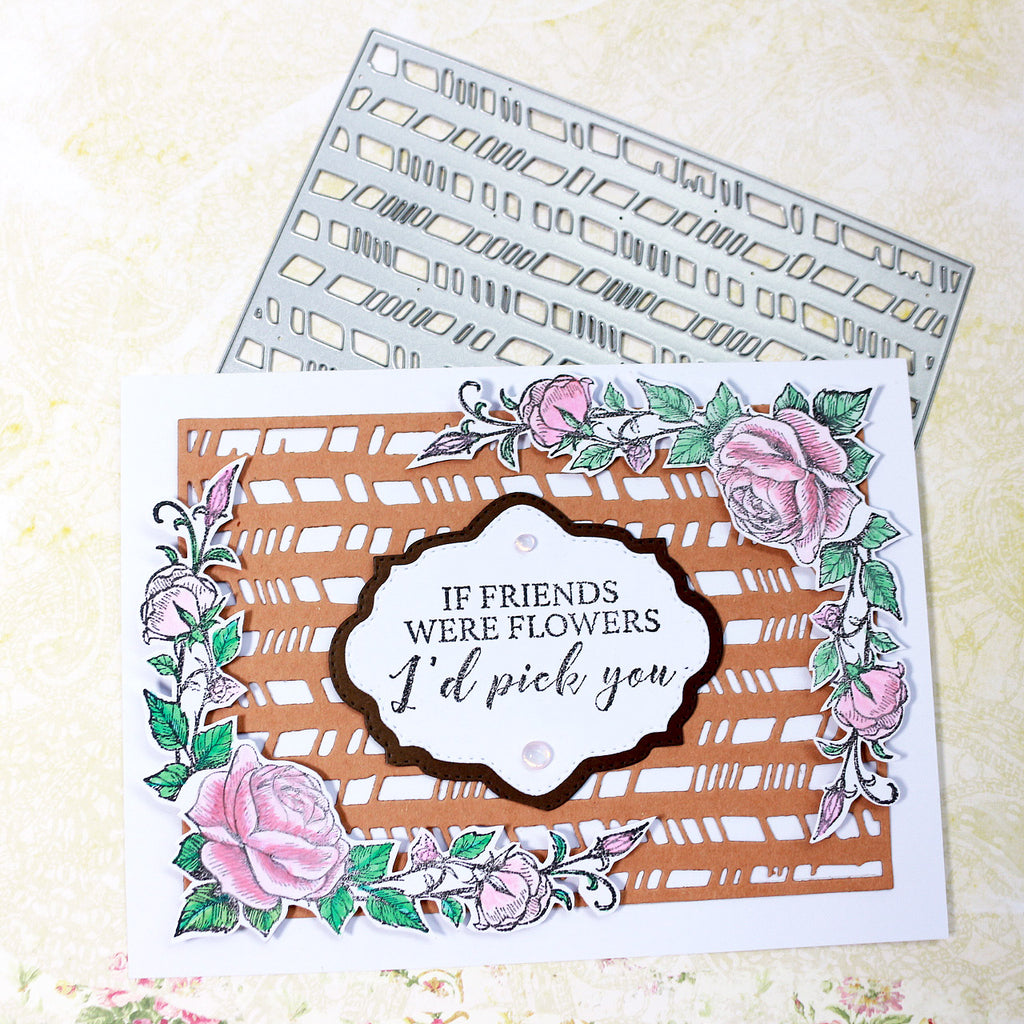 IF FRIENDS
WERE FLOWERS
I'd pick you